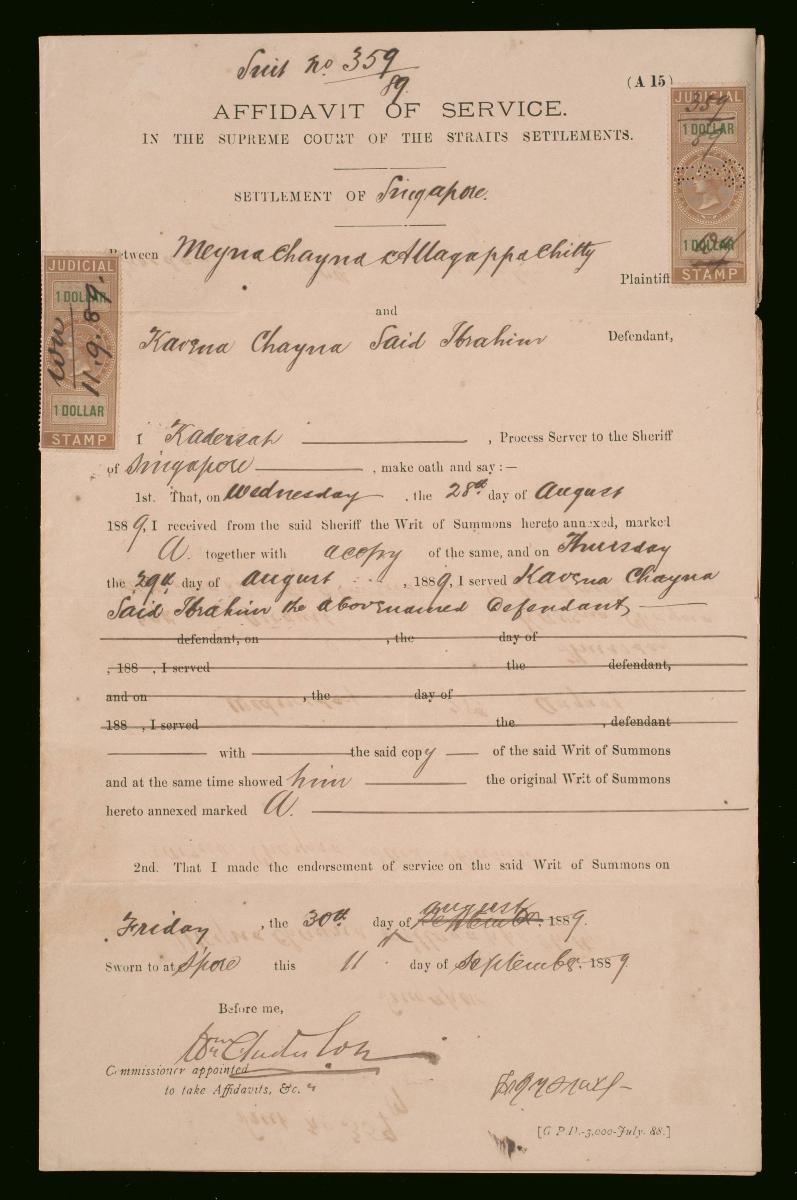 Suit No 359/89.
(A 15)
AFFIDAVIT OF SERVICE.
IN THE SUPREME COURT OF THE STRAITS SETTLEMENTS.
SETTLEMENT OF Singapore.
Between Meyna Chayna & Allagappa Chitty
Plaintiff
and
Kavena Chayna Said Ibrahim Defendant,
I Kadersah , Process Server to the Sheriff
of Singapore , make oath and say :—
1st. That, on Wednesday , the 28th day of August
1889, I received from the said Sheriff the Writ of Summons hereto annexed, marked
A. together with a copy of the same, and on Thursday
the 29th day of August , 1889, I served Kavena Chayna
Said Ibrahim the abovenamed Defendant
defendant, on , the day of
, 188 , I served the defendant,
and on , the day of
188 , I served the , defendant
with the said copy of the said Writ of Summons
and at the same time showed him the original Writ of Summons
hereto annexed marked A.
2nd. That I made the endorsement of service on the said Writ of Summons on
august
Friday , the 30th day of September 1889.
Sworn to at S'pore this 11 day of September 1889.
Before me,
Commissioner appointed
to take Affidavits, &c.
[G P.D.-3,000-July. 88.]
JUDICIAL
359
1 DOLLAR
89
1 DOLLAR
STAMP
JUDICIAL
1 DOLLAR
11.9.89.
1 DOLLAR
STAMP